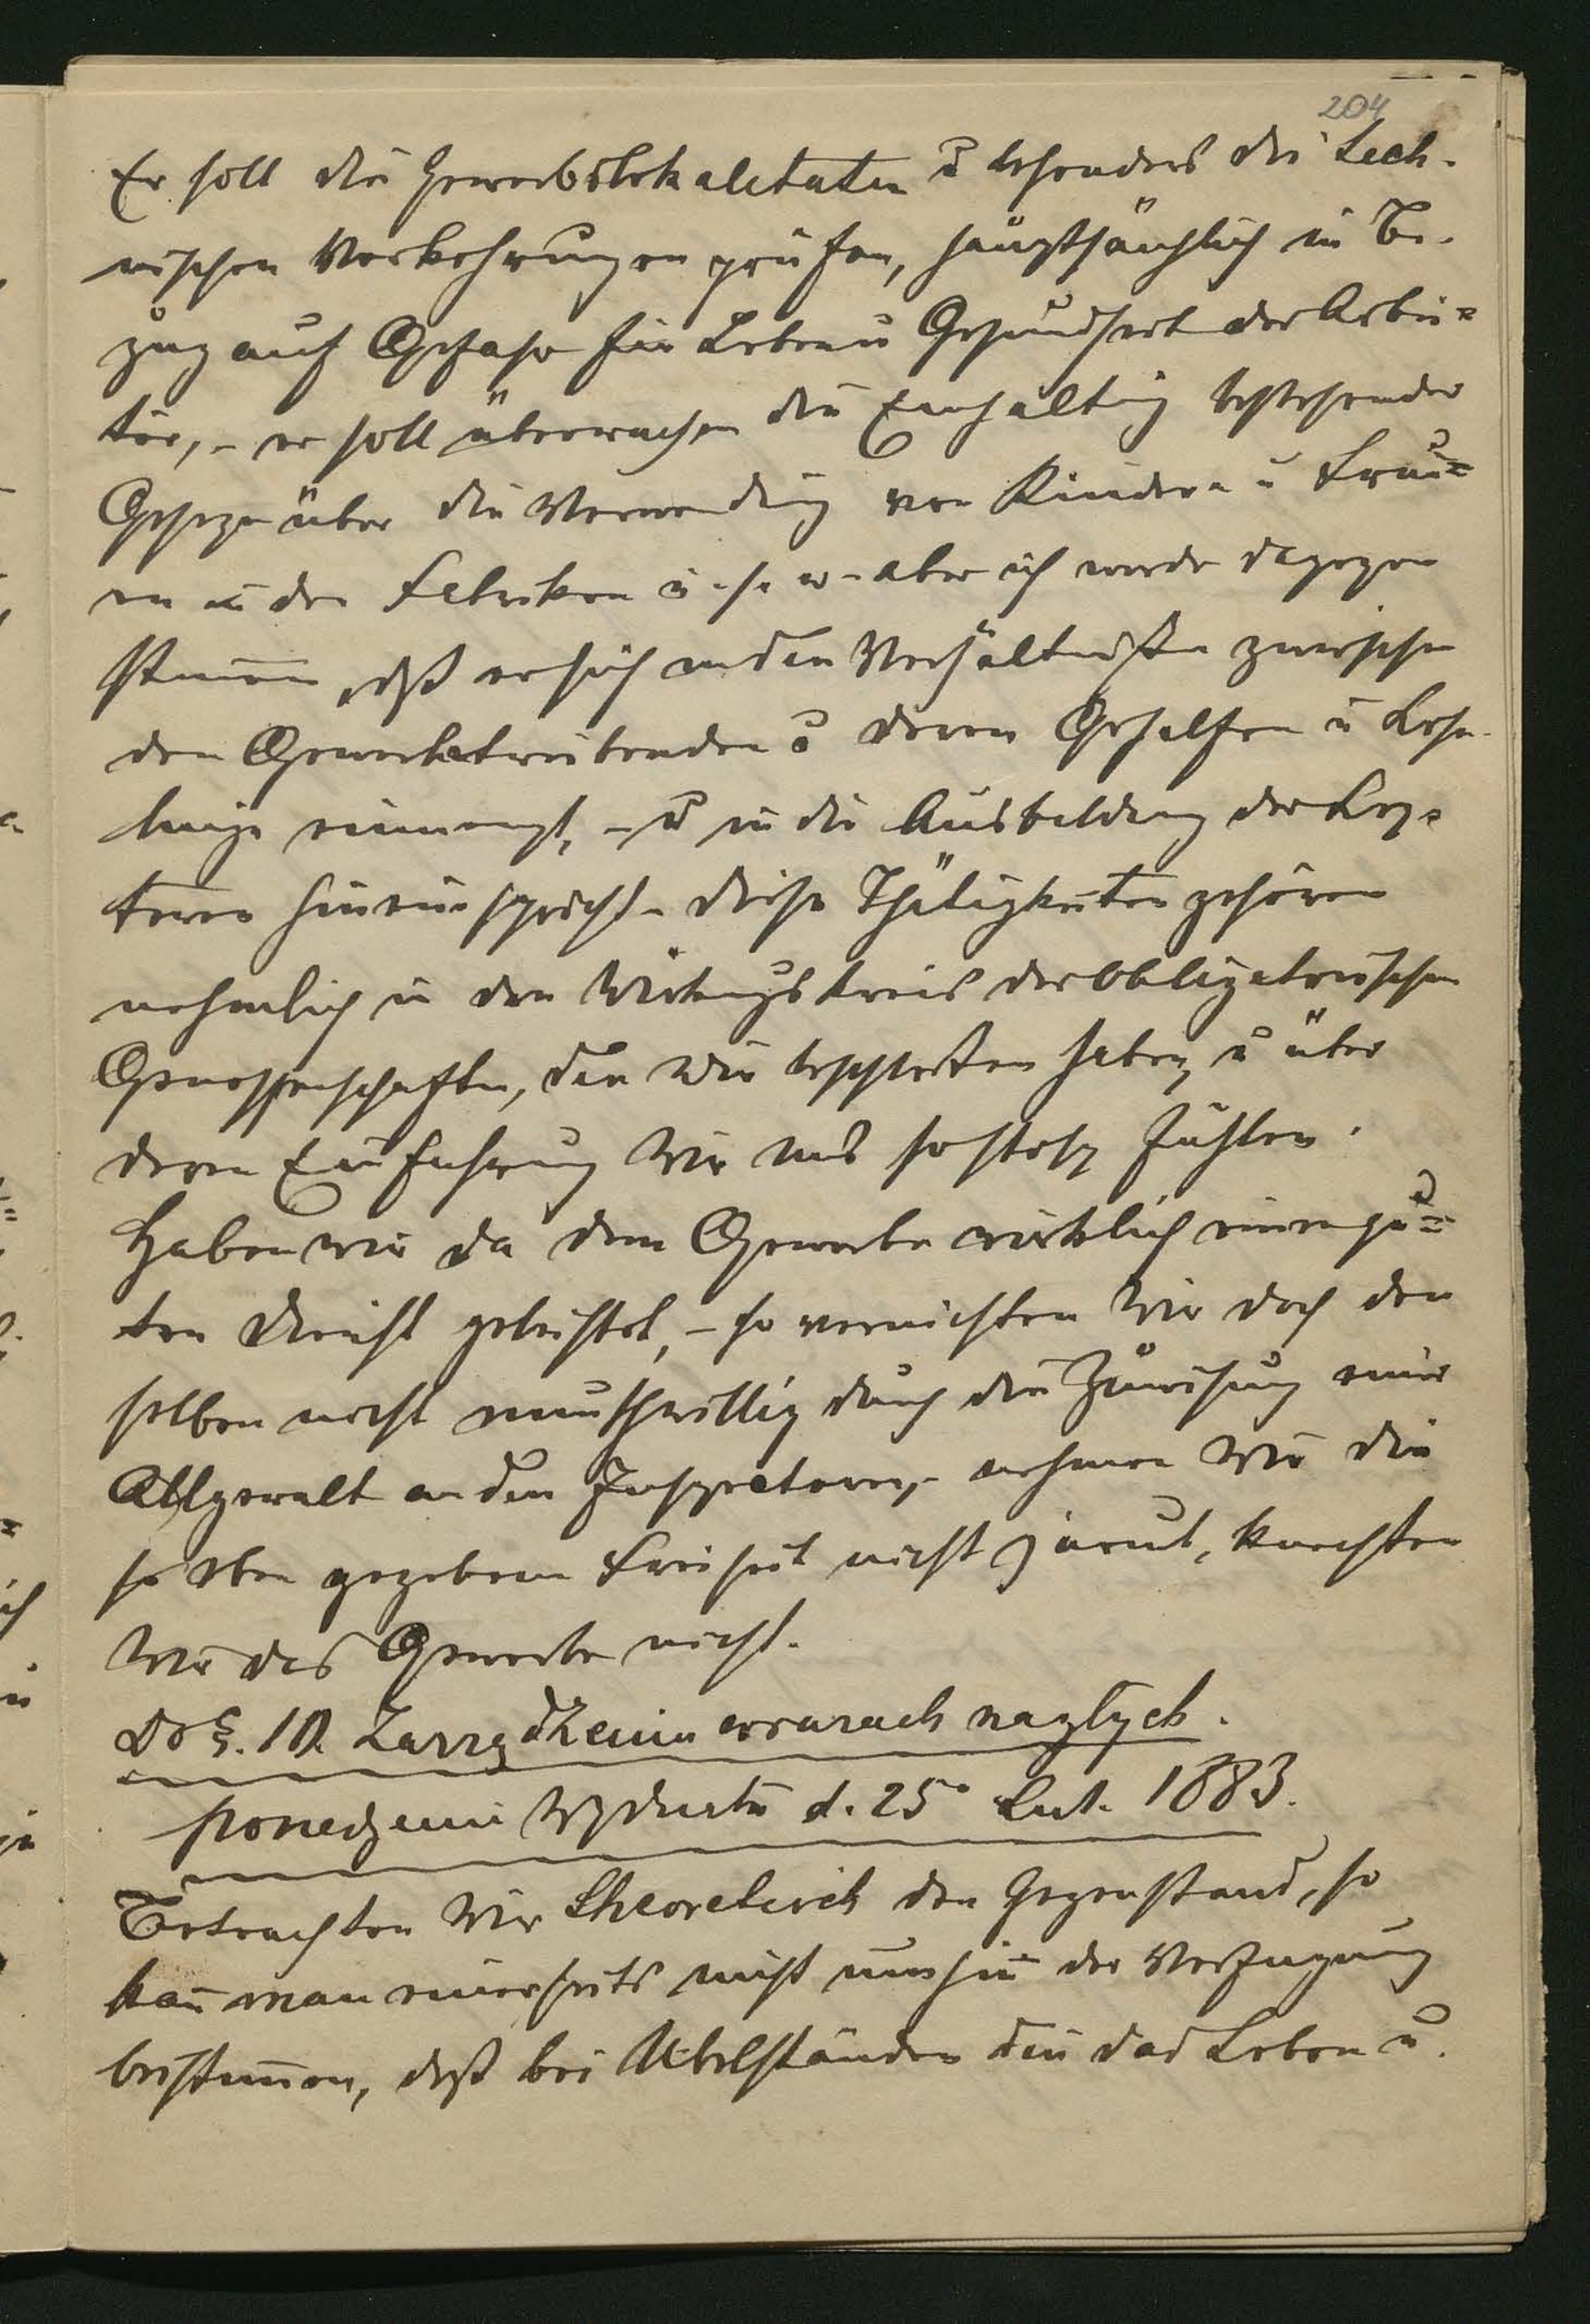 204
Er soll die Gewerbslokalitäten u besonders die tech-
nischen Vorkehrungen prüfen, hauptsächlich in Be-
zug auf Gefahr für Leben u Gesundheit der Arbei=
ter, - er soll überwachen die Einhaltung bestehender
Gesetze über die Verwendung von Kindern u Frau=
en in den Fabriken u. s. w - aber ich werde dagegen
stimmen, dß er sich in den Verhältnißen zwischen
den Gewerbetreibenden u deren Gehilfen u Lehr-
linge einmengt, - u in die Ausbildung der Letz-
teren hineinspricht - diese Thätigkeiten gehören
nehmlich in den Wirkungskreis der obligatorischen
Genossenschaften, den wir beschloßen haben, u über
deren Einführung wir uns so stolz fühlen.
Haben wir da dem Gewerbe wirklich einen gu=
ten Dienst geleistet, - so vernichten wir doch den
selben nicht muthwillig durch die Zuweisung einer
Allgewalt an den Inspectoren, - nehmen wir die
so eben gegebene Freiheit nicht zurück, knechten
wir das Gewerbe nicht.
Do §. 10. Zarządzenia w razach nagłych.
d. 25° Lut. 1883.
Betrachten wir theoretisch den Gegenstand, so
kan̄ man einerseits nicht umhin der Verfügung
beistim̄en, daß bei Übelständen die das Leben u.